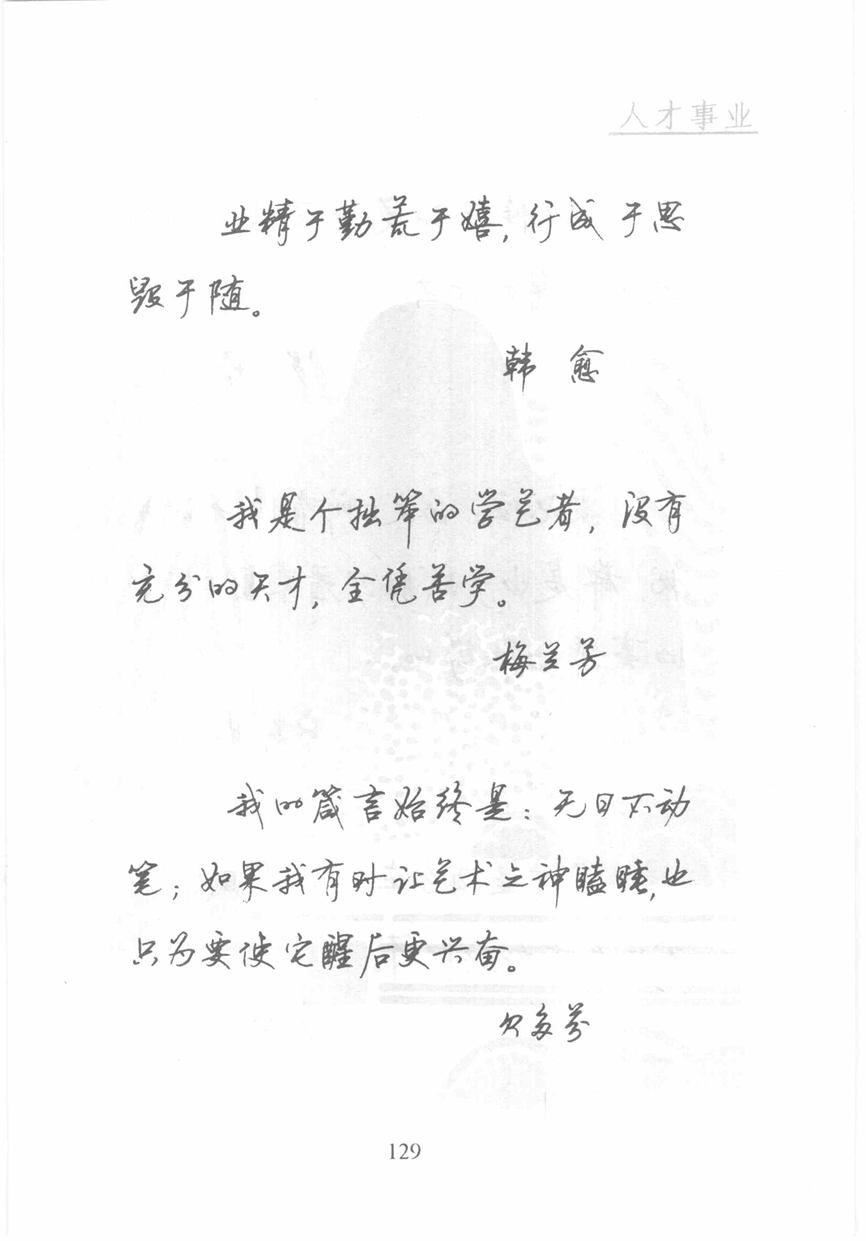 人才事业
业精于勤荒于嬉,行成于思
毁于随。
韩 愈
我是个拙笨的学艺者,没有
充分的天才,全凭苦学。
梅兰芳
我的箴言始终是:无日不动
笔;如果我有时让艺术之神瞌睡,也
只为要使它醒后更兴奋。
贝多芬
129